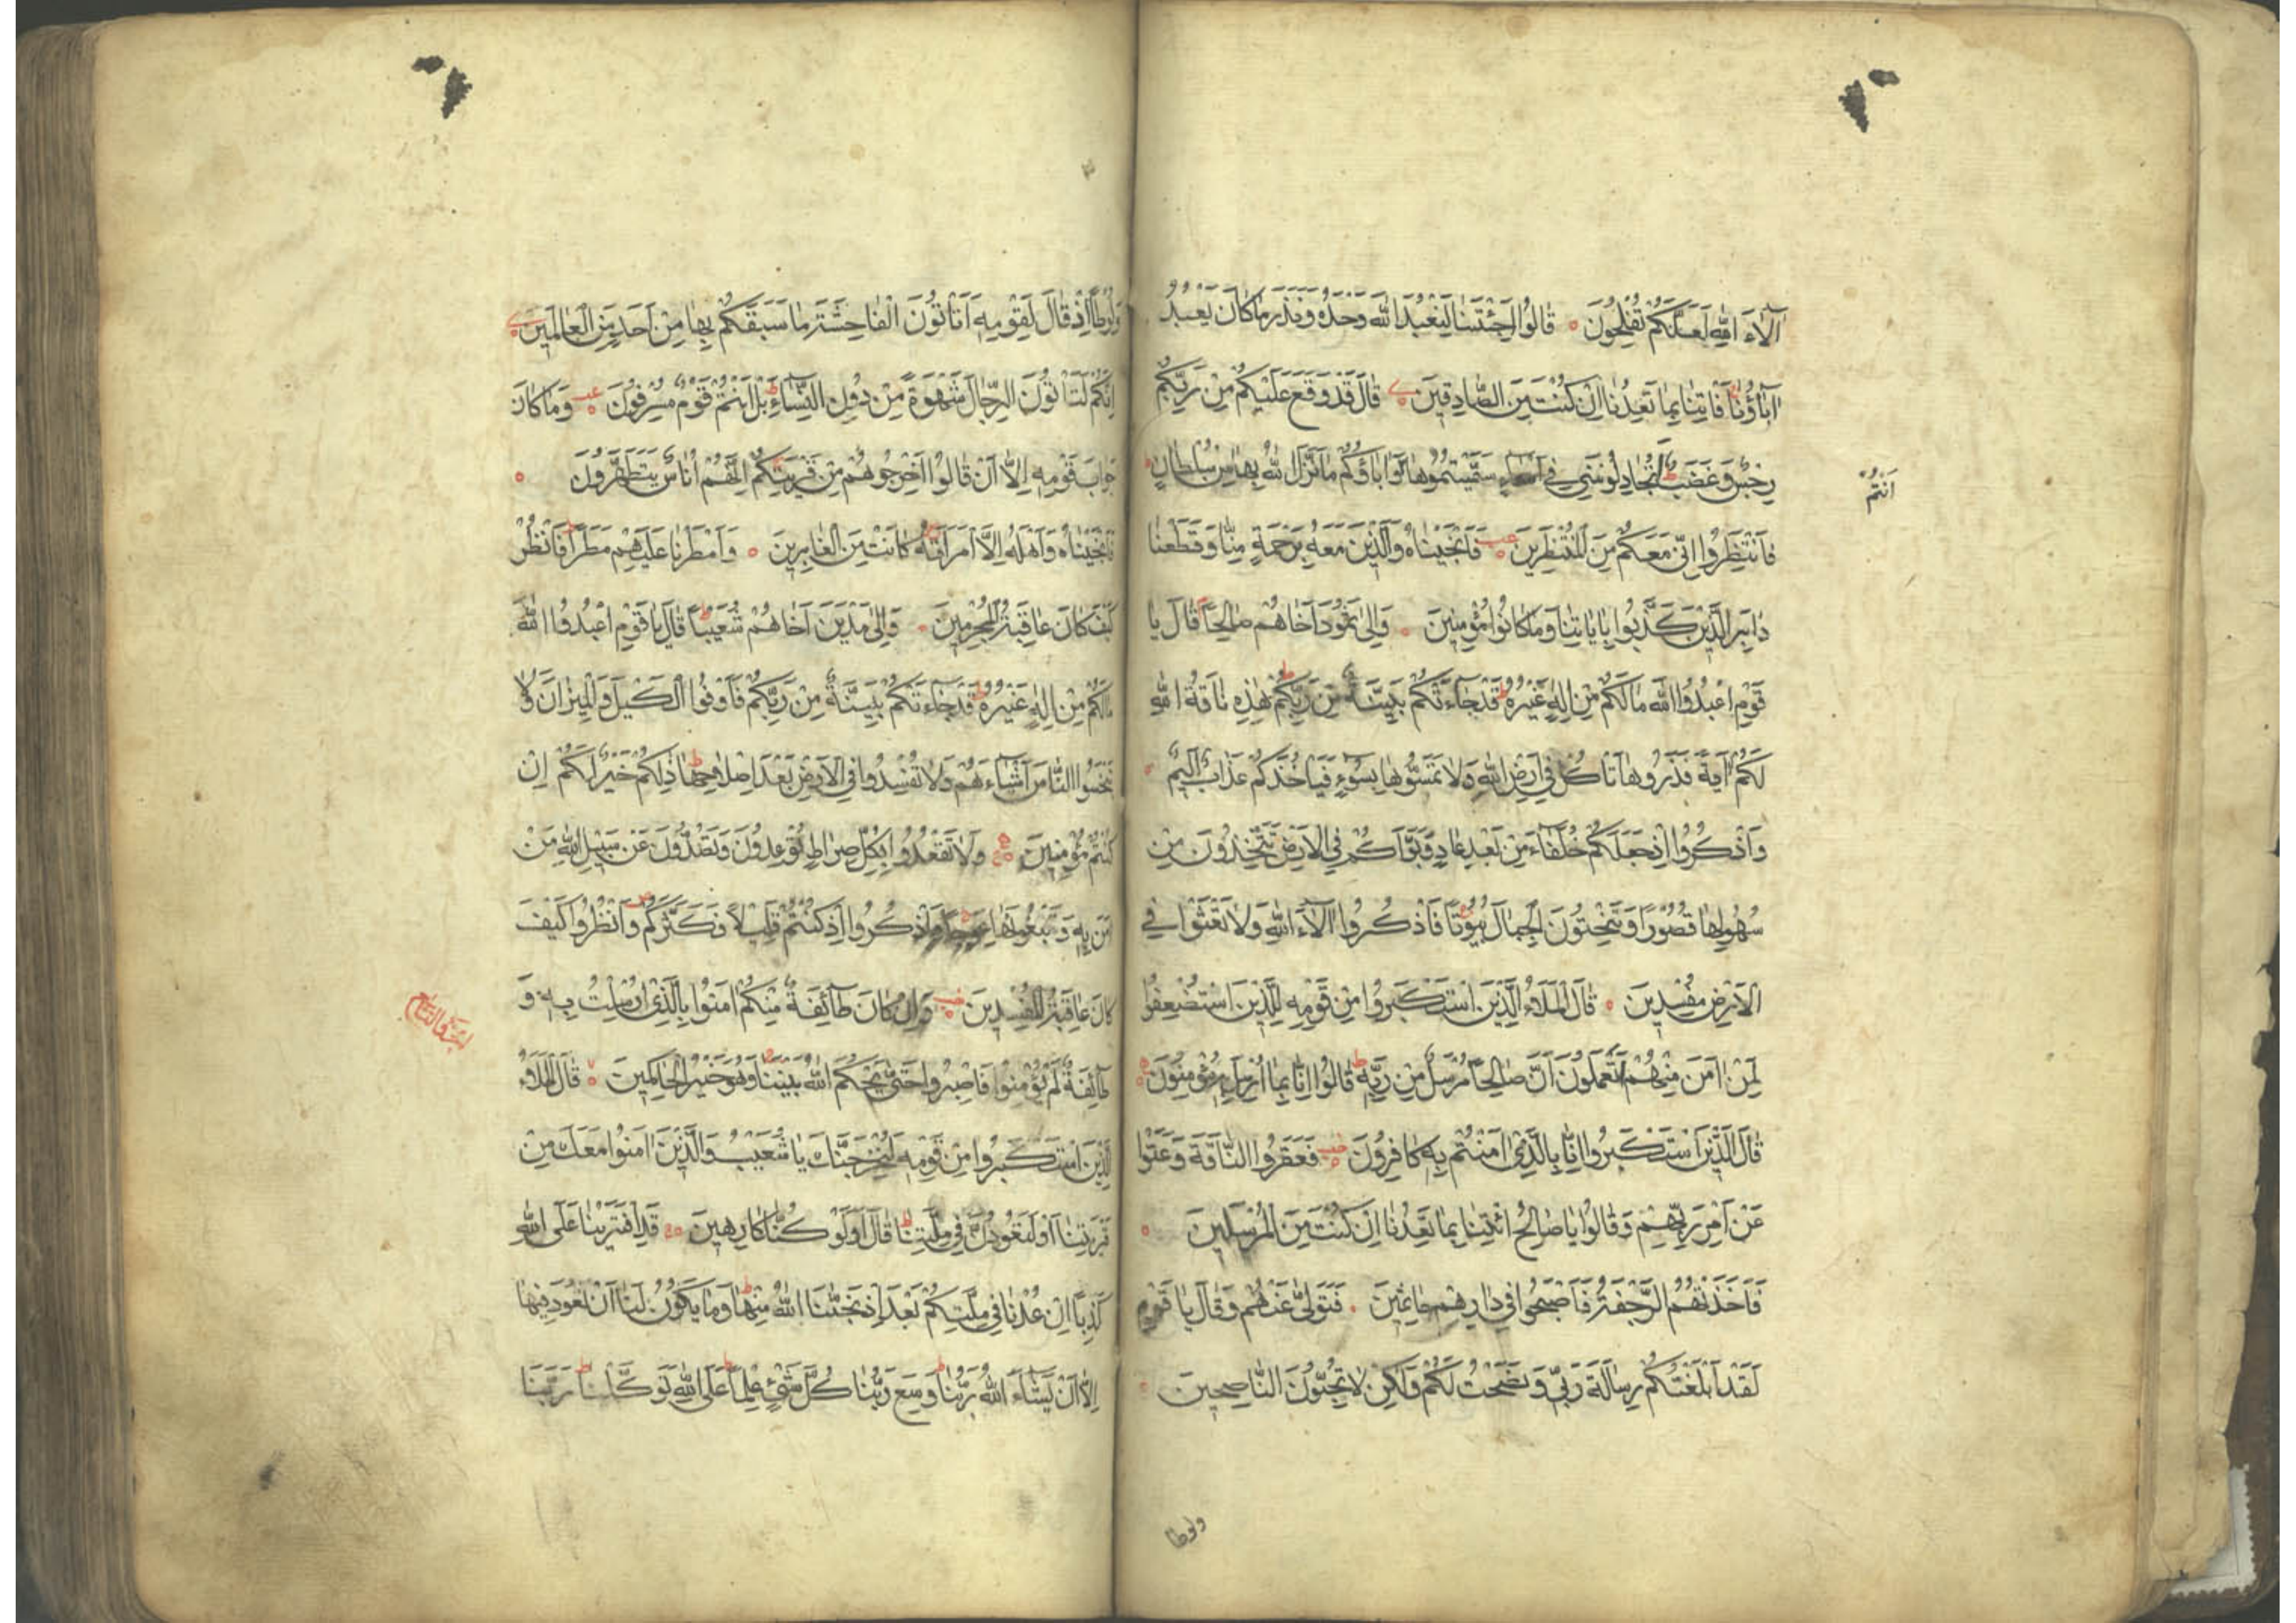 آلَاءَ اللّٰهِ لَعَلَّكُمْ تُفْلِحُونَ ۝ قَالُوا اَجِئْتَنَا لِنَعْبُدَ اللّٰهَ وَحْدَهُ وَنَذَرَ مَا كَانَ يَعْبُدُ
آبَاؤُنَا فَاتِنَا بِمَا تَعِدُنَا اِنْ كُنْتَ مِنَ الصَّادِقِينَ ۝ قَالَ قَدْ وَقَعَ عَلَيْكُمْ مِنْ رَبِّكُمْ
رِجْسٌ وَغَضَبٌ اَتُجَادِلُونَنِي فِي اَسْمَاءٍ سَمَّيْتُمُوهَا وَاٰبَاؤُكُمْ مَا نَزَّلَ اللّٰهُ بِهَا مِنْ سُلْطَانٍ
اَنْتُمْ
فَانْتَظِرُوا اِنِّي مَعَكُمْ مِنَ الْمُنْتَظِرِينَ ۝ فَاَنْجَيْنَاهُ وَالَّذِينَ مَعَهُ بِرَحْمَةٍ مِنَّا وَقَطَعْنَا
دَابِرَ الَّذِينَ كَذَّبُوا بِاٰيَاتِنَا وَمَا كَانُوا مُؤْمِنِينَ ۝ وَاِلٰى ثَمُودَ اَخَاهُمْ صَالِحًا قَالَ يَا
قَوْمِ اعْبُدُوا اللّٰهَ مَا لَكُمْ مِنْ اِلٰهٍ غَيْرُهُ قَدْ جَاءَتْكُمْ بَيِّنَةٌ مِنْ رَبِّكُمْ هٰذِهِ نَاقَةُ اللّٰهِ
لَكُمْ آيَةً فَذَرُوهَا تَاكُلْ فِي اَرْضِ اللّٰهِ وَلَا تَمَسُّوهَا بِسُوءٍ فَيَاخُذَكُمْ عَذَابٌ اَلِيمٌ ۝
وَاذْكُرُوا اِذْ جَعَلَكُمْ خُلَفَاءَ مِنْ بَعْدِ عَادٍ وَبَوَّاَكُمْ فِي الْاَرْضِ تَتَّخِذُونَ مِنْ
سُهُولِهَا قُصُورًا وَتَنْحِتُونَ الْجِبَالَ بُيُوتًا فَاذْكُرُوا آلَاءَ اللّٰهِ وَلَا تَعْثَوْا فِي
الْاَرْضِ مُفْسِدِينَ ۝ قَالَ الْمَلَاُ الَّذِينَ اسْتَكْبَرُوا مِنْ قَوْمِهِ لِلَّذِينَ اسْتُضْعِفُوا
لِمَنْ اٰمَنَ مِنْهُمْ اَتَعْلَمُونَ اَنَّ صَالِحًا مُرْسَلٌ مِنْ رَبِّهِ قَالُوا اِنَّا بِمَا اُرْسِلَ بِهِ مُؤْمِنُونَ ۝
قَالَ الَّذِينَ اسْتَكْبَرُوا اِنَّا بِالَّذِي اٰمَنْتُمْ بِهِ كَافِرُونَ ۝ فَعَقَرُوا النَّاقَةَ وَعَتَوْا
عَنْ اَمْرِ رَبِّهِمْ وَقَالُوا يَا صَالِحُ ائْتِنَا بِمَا تَعِدُنَا اِنْ كُنْتَ مِنَ الْمُرْسَلِينَ ۝
فَاَخَذَتْهُمُ الرَّجْفَةُ فَاَصْبَحُوا فِي دَارِهِمْ جَاثِمِينَ ۝ فَتَوَلّٰى عَنْهُمْ وَقَالَ يَا قَوْمِ
لَقَدْ اَبْلَغْتُكُمْ رِسَالَةَ رَبِّي وَنَصَحْتُ لَكُمْ وَلٰكِنْ لَا تُحِبُّونَ النَّاصِحِينَ ۝
ولوطا
وَلُوطًا اِذْ قَالَ لِقَوْمِهِ اَتَاتُونَ الْفَاحِشَةَ مَا سَبَقَكُمْ بِهَا مِنْ اَحَدٍ مِنَ الْعَالَمِينَ ۝
اِنَّكُمْ لَتَاتُونَ الرِّجَالَ شَهْوَةً مِنْ دُونِ النِّسَاءِ بَلْ اَنْتُمْ قَوْمٌ مُسْرِفُونَ ۝ وَمَا كَانَ
جَوَابَ قَوْمِهِ اِلَّا اَنْ قَالُوا اَخْرِجُوهُمْ مِنْ قَرْيَتِكُمْ اِنَّهُمْ اُنَاسٌ يَتَطَهَّرُونَ ۝
فَاَنْجَيْنَاهُ وَاَهْلَهُ اِلَّا امْرَاَتَهُ كَانَتْ مِنَ الْغَابِرِينَ ۝ وَاَمْطَرْنَا عَلَيْهِمْ مَطَرًا فَانْظُرْ
كَيْفَ كَانَ عَاقِبَةُ الْمُجْرِمِينَ ۝ وَاِلٰى مَدْيَنَ اَخَاهُمْ شُعَيْبًا قَالَ يَا قَوْمِ اعْبُدُوا اللّٰهَ
مَا لَكُمْ مِنْ اِلٰهٍ غَيْرُهُ قَدْ جَاءَتْكُمْ بَيِّنَةٌ مِنْ رَبِّكُمْ فَاَوْفُوا الْكَيْلَ وَالْمِيزَانَ وَلَا
تَبْخَسُوا النَّاسَ اَشْيَاءَهُمْ وَلَا تُفْسِدُوا فِي الْاَرْضِ بَعْدَ اِصْلَاحِهَا ذٰلِكُمْ خَيْرٌ لَكُمْ اِنْ
كُنْتُمْ مُؤْمِنِينَ ۝ وَلَا تَقْعُدُوا بِكُلِّ صِرَاطٍ تُوعِدُونَ وَتَصُدُّونَ عَنْ سَبِيلِ اللّٰهِ مَنْ
اٰمَنَ بِهِ وَتَبْغُونَهَا عِوَجًا وَاذْكُرُوا اِذْ كُنْتُمْ قَلِيلًا فَكَثَّرَكُمْ وَانْظُرُوا كَيْفَ
كَانَ عَاقِبَةُ الْمُفْسِدِينَ ۝ وَاِنْ كَانَ طَائِفَةٌ مِنْكُمْ اٰمَنُوا بِالَّذِي اُرْسِلْتُ بِهِ وَ
طَائِفَةٌ لَمْ يُؤْمِنُوا فَاصْبِرُوا حَتّٰى يَحْكُمَ اللّٰهُ بَيْنَنَا وَهُوَ خَيْرُ الْحَاكِمِينَ ۝ قَالَ الْمَلَاُ
الَّذِينَ اسْتَكْبَرُوا مِنْ قَوْمِهِ لَنُخْرِجَنَّكَ يَا شُعَيْبُ وَالَّذِينَ اٰمَنُوا مَعَكَ مِنْ
قَرْيَتِنَا اَوْ لَتَعُودُنَّ فِي مِلَّتِنَا قَالَ اَوَلَوْ كُنَّا كَارِهِينَ ۝ قَدِ افْتَرَيْنَا عَلَى اللّٰهِ
كَذِبًا اِنْ عُدْنَا فِي مِلَّتِكُمْ بَعْدَ اِذْ نَجّٰنَا اللّٰهُ مِنْهَا وَمَا يَكُونُ لَنَا اَنْ نَعُودَ فِيهَا
اِلَّا اَنْ يَشَاءَ اللّٰهُ رَبُّنَا وَسِعَ رَبُّنَا كُلَّ شَيْءٍ عِلْمًا عَلَى اللّٰهِ تَوَكَّلْنَا رَبَّنَا